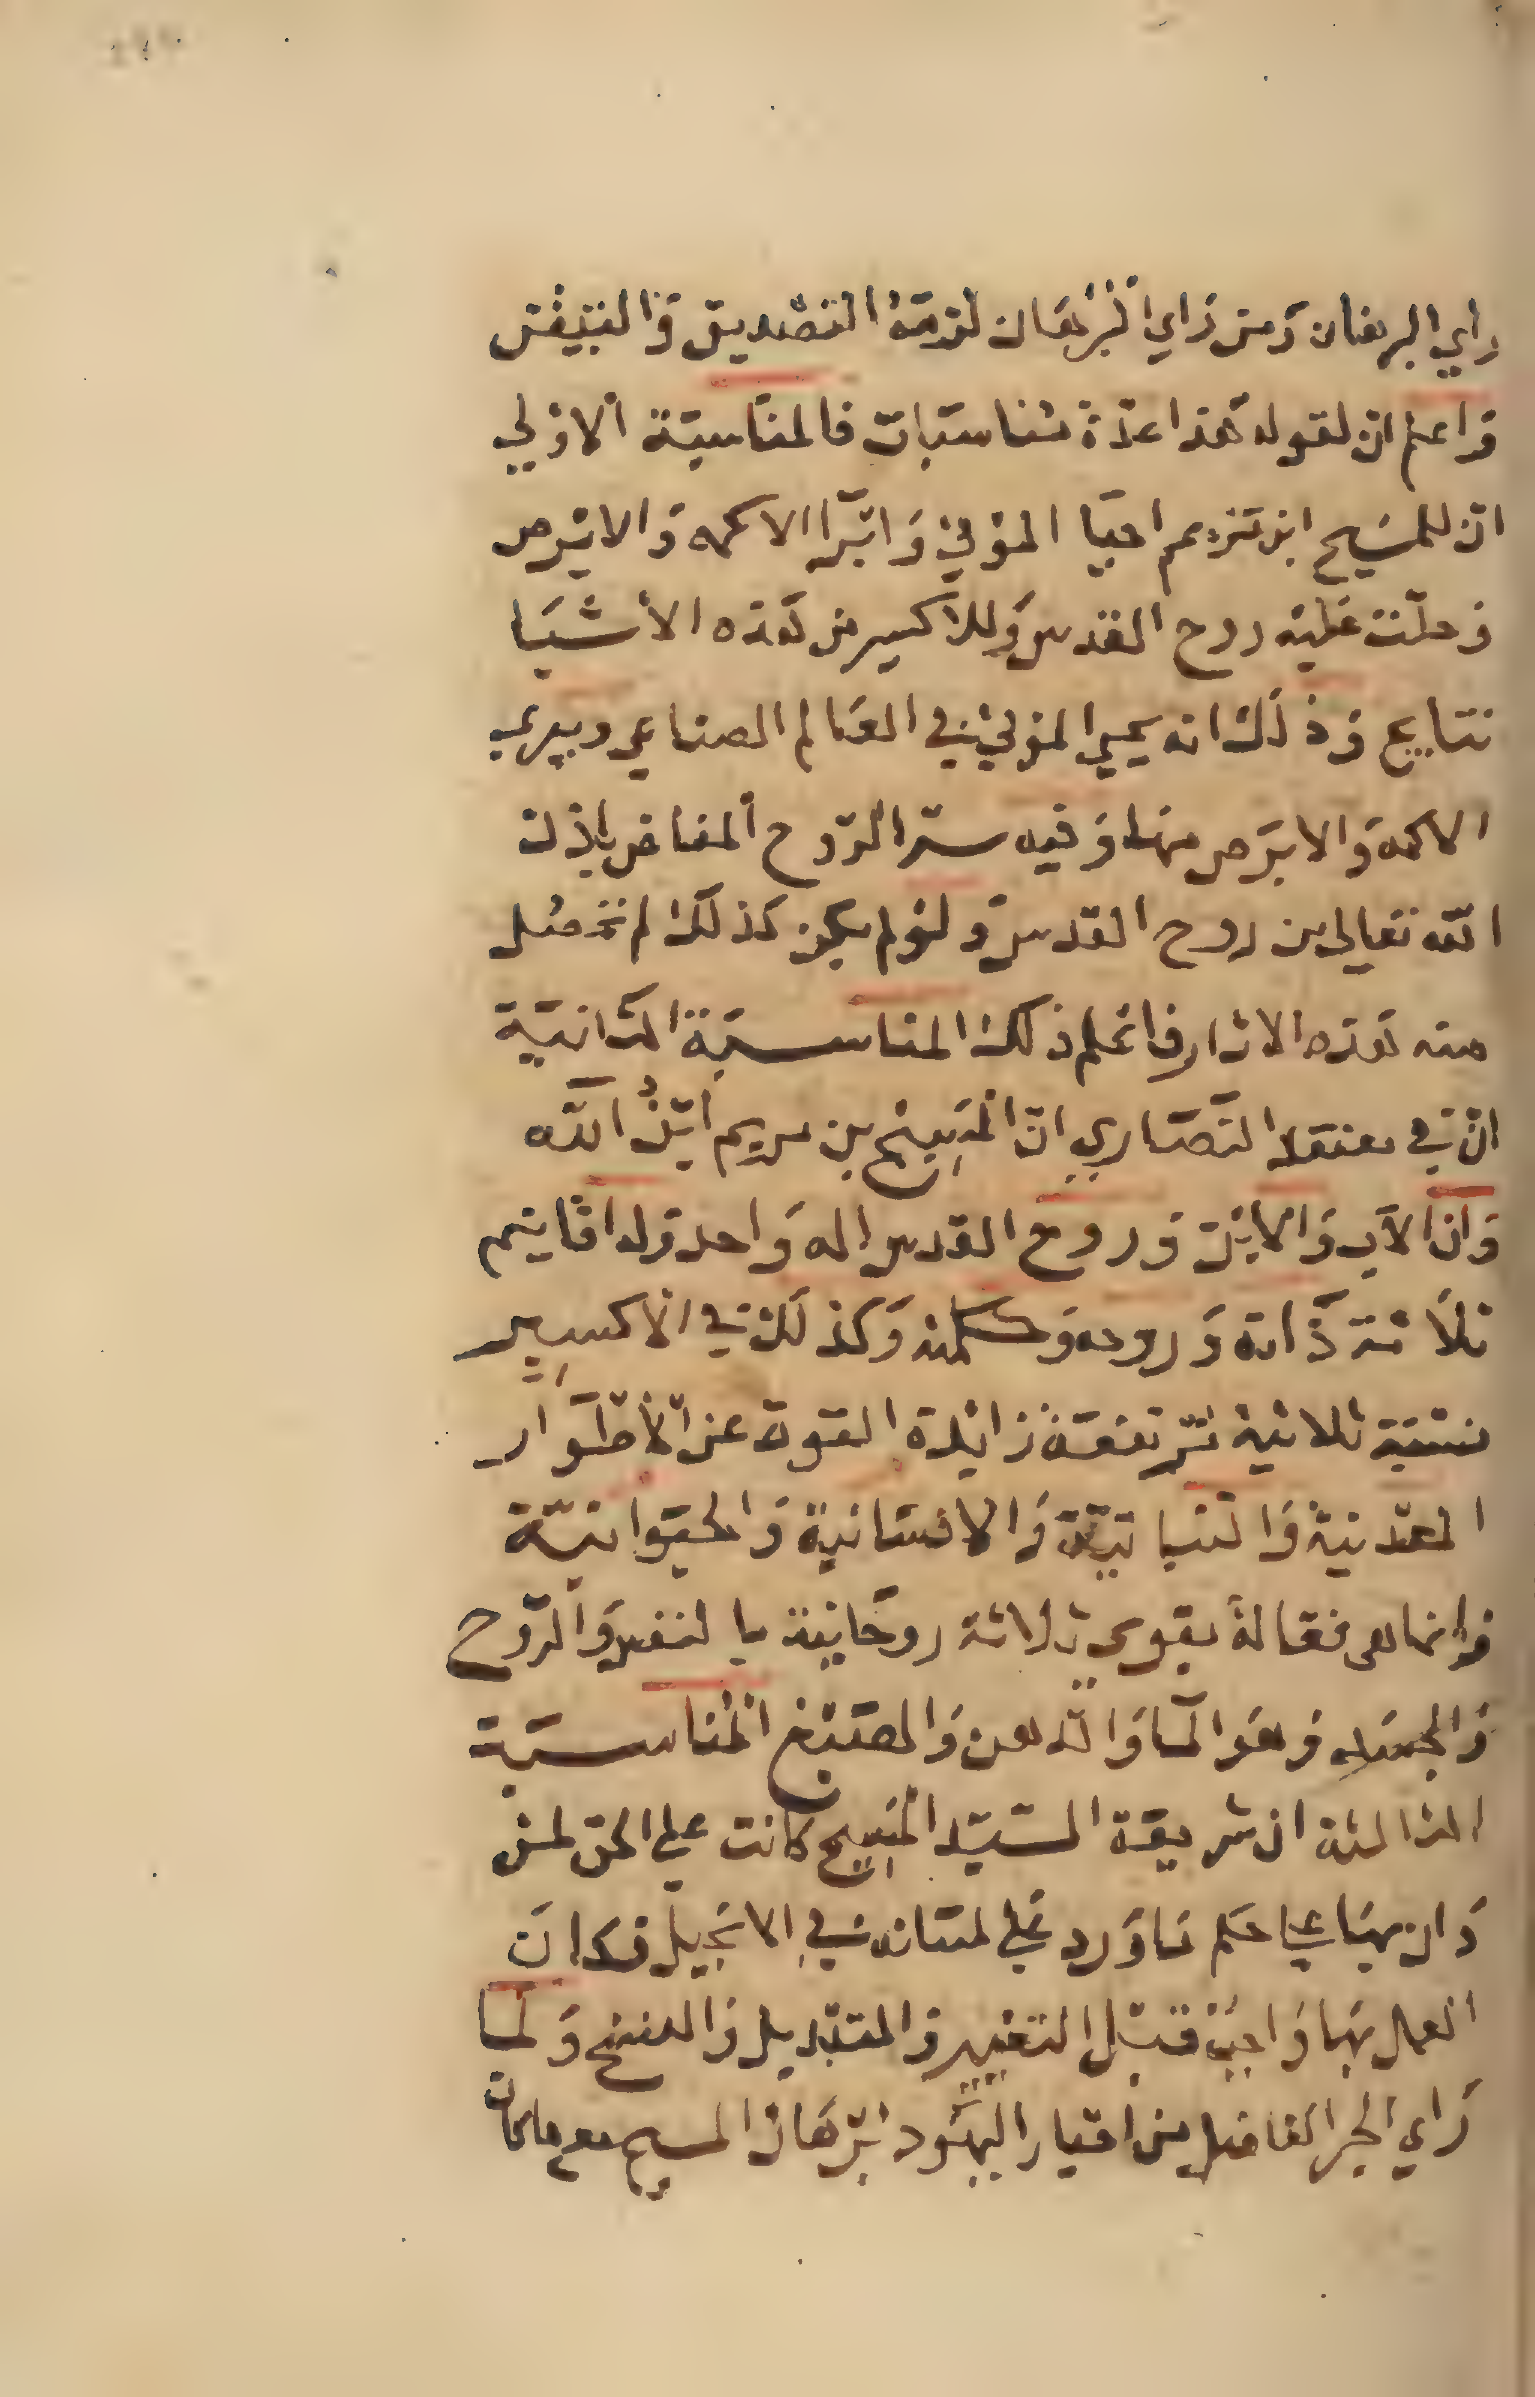 راي البرهان ومن راي البرهان لزمه التصديق والتيقن
واعلم ان لقوله هذا عدة مناسبات فالمناسبة الاولي
ان للمسيح ابن مريم احيا الموتي وابرا الاكمه والابرص
وحلت عليه روح القدس وللاكسير من هذه الأشيا
نتايج وذلك انه يحيي الموتي في العالم الصناعي ويبري
الاكمه والابرص منها وفيه سر الروح المفاض باذن
الله تعالي من روح القدس ولو لم يكن كذلك لم تحصل
منه هذه الاثار فاعلم ذلك المناسبة الثانية
ان في معتقد النصاري ان المسيح بن مريم ابن الله
وان الاب والابن وروح القدس اله واحد وله اقانيم
ثلاثة ذاته وروحه وكلمته وكذلك في الاكسير
نسبة ثلاثية مرتفعة زايدة القوة عن الأطوار
المعدنية والنباتية والانسانية والحيوانية
وانما هى فعالة بقوي ثلاثة روحانية بالنفس والروح
والجسد وهو الما والدهن والصبغ المناسبة
الثالثة ان شريعة السيد المسيح كانت علي الحق لمن
دان بها علي حكم ما ورد علي لسانه في الانجيل فكان
العمل بها واجب قبل التغيير والتبديل والنسخ ولما
راي الحبر الفاضل من احبار اليهود برهان المسيح مع ما كان